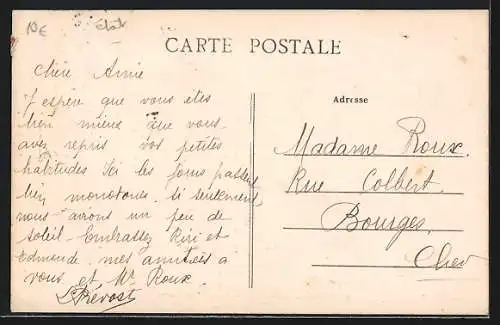 10€
État
CARTE POSTALE
Chère Amie
J espère que vous êtes
bien mieux que vous
avez repris vos petites
habitudes Ici les jours passent
bien monotones. si seulement
nous avions un peu de
soleil. Embrassez Riri et
Edmonde. mes amitiés à
vous et Mr Roux.
L Prévost
Adresse
Madame Roux.
Rue Colbert.
Bourges.
Cher